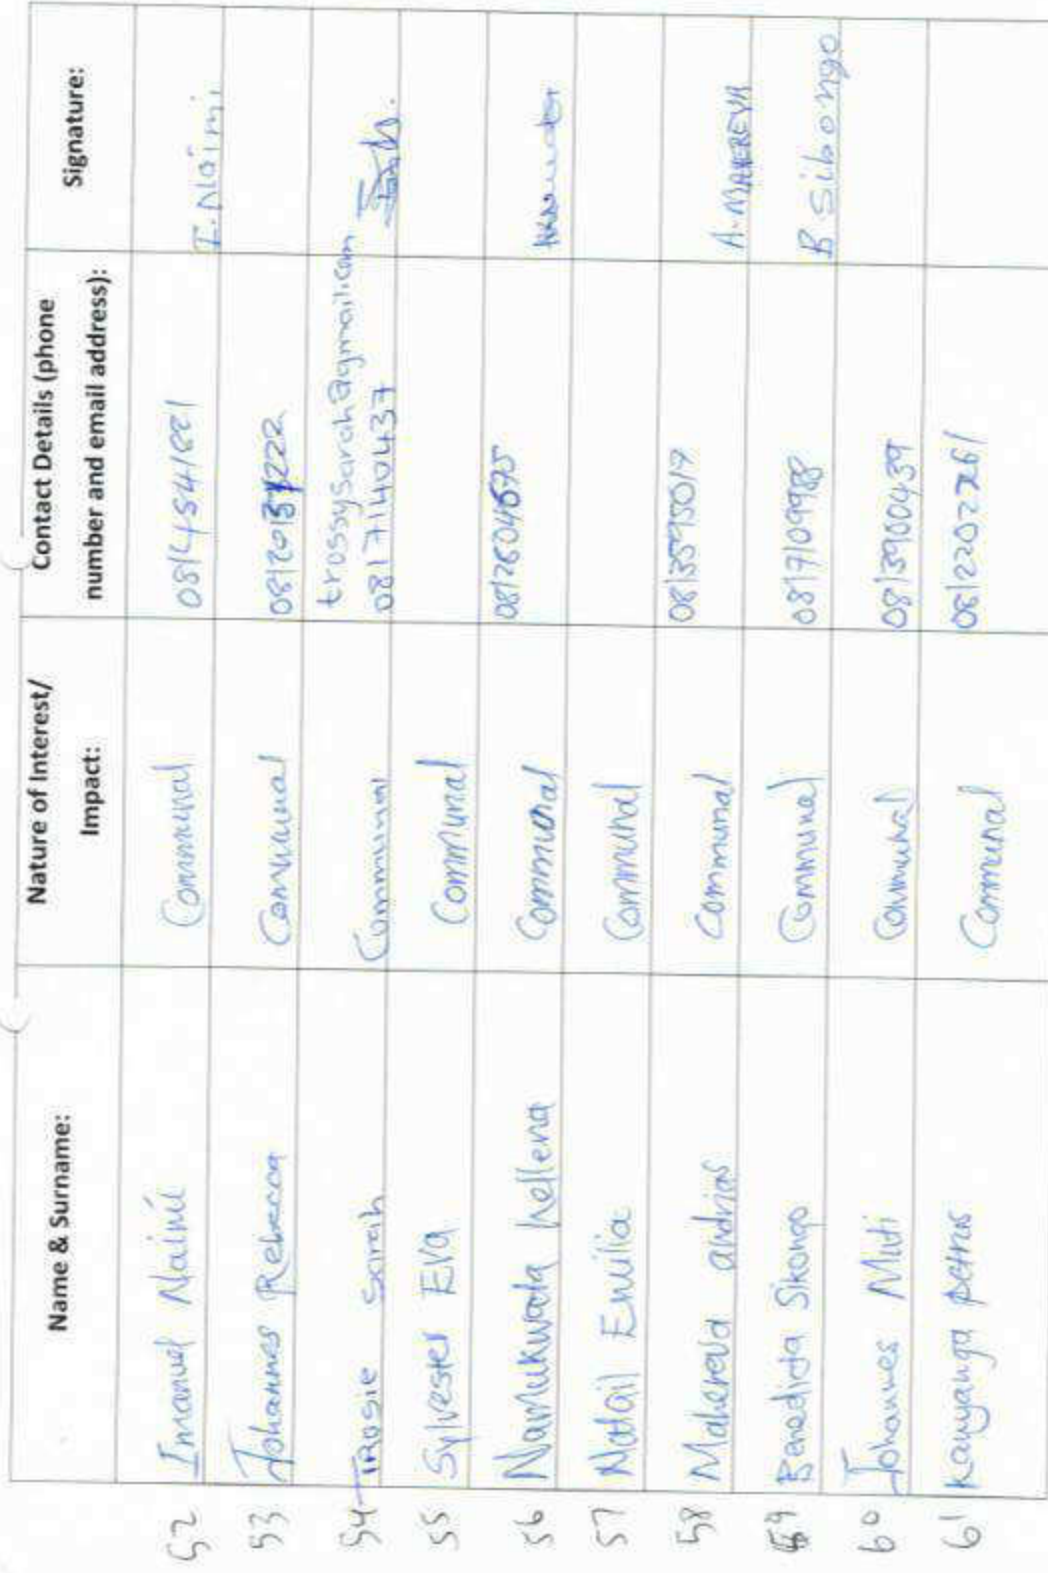 Name & Surname: Nature of Interest/ Impact: Contact Details (phone number and email address): Signature:
52 Imanuel Naimi Communal 0814541881 I. Naimi
53 Johannes Rebecca Communal
54 TROSIE Sarah Communal trossysarah@gmail.com
0817140437
55 Sylvester EVA Communal
56 Namukwata hellena Communal 0812604675
57 Natail Emilia Communal
58 Maherero andrias Communal 0813593017 A.
59 Benedicta Sikongo Communal 0817109988 B Sibongo
60 Johannes Muti Communal 0813900439
61 Kanyanga petrus Communal